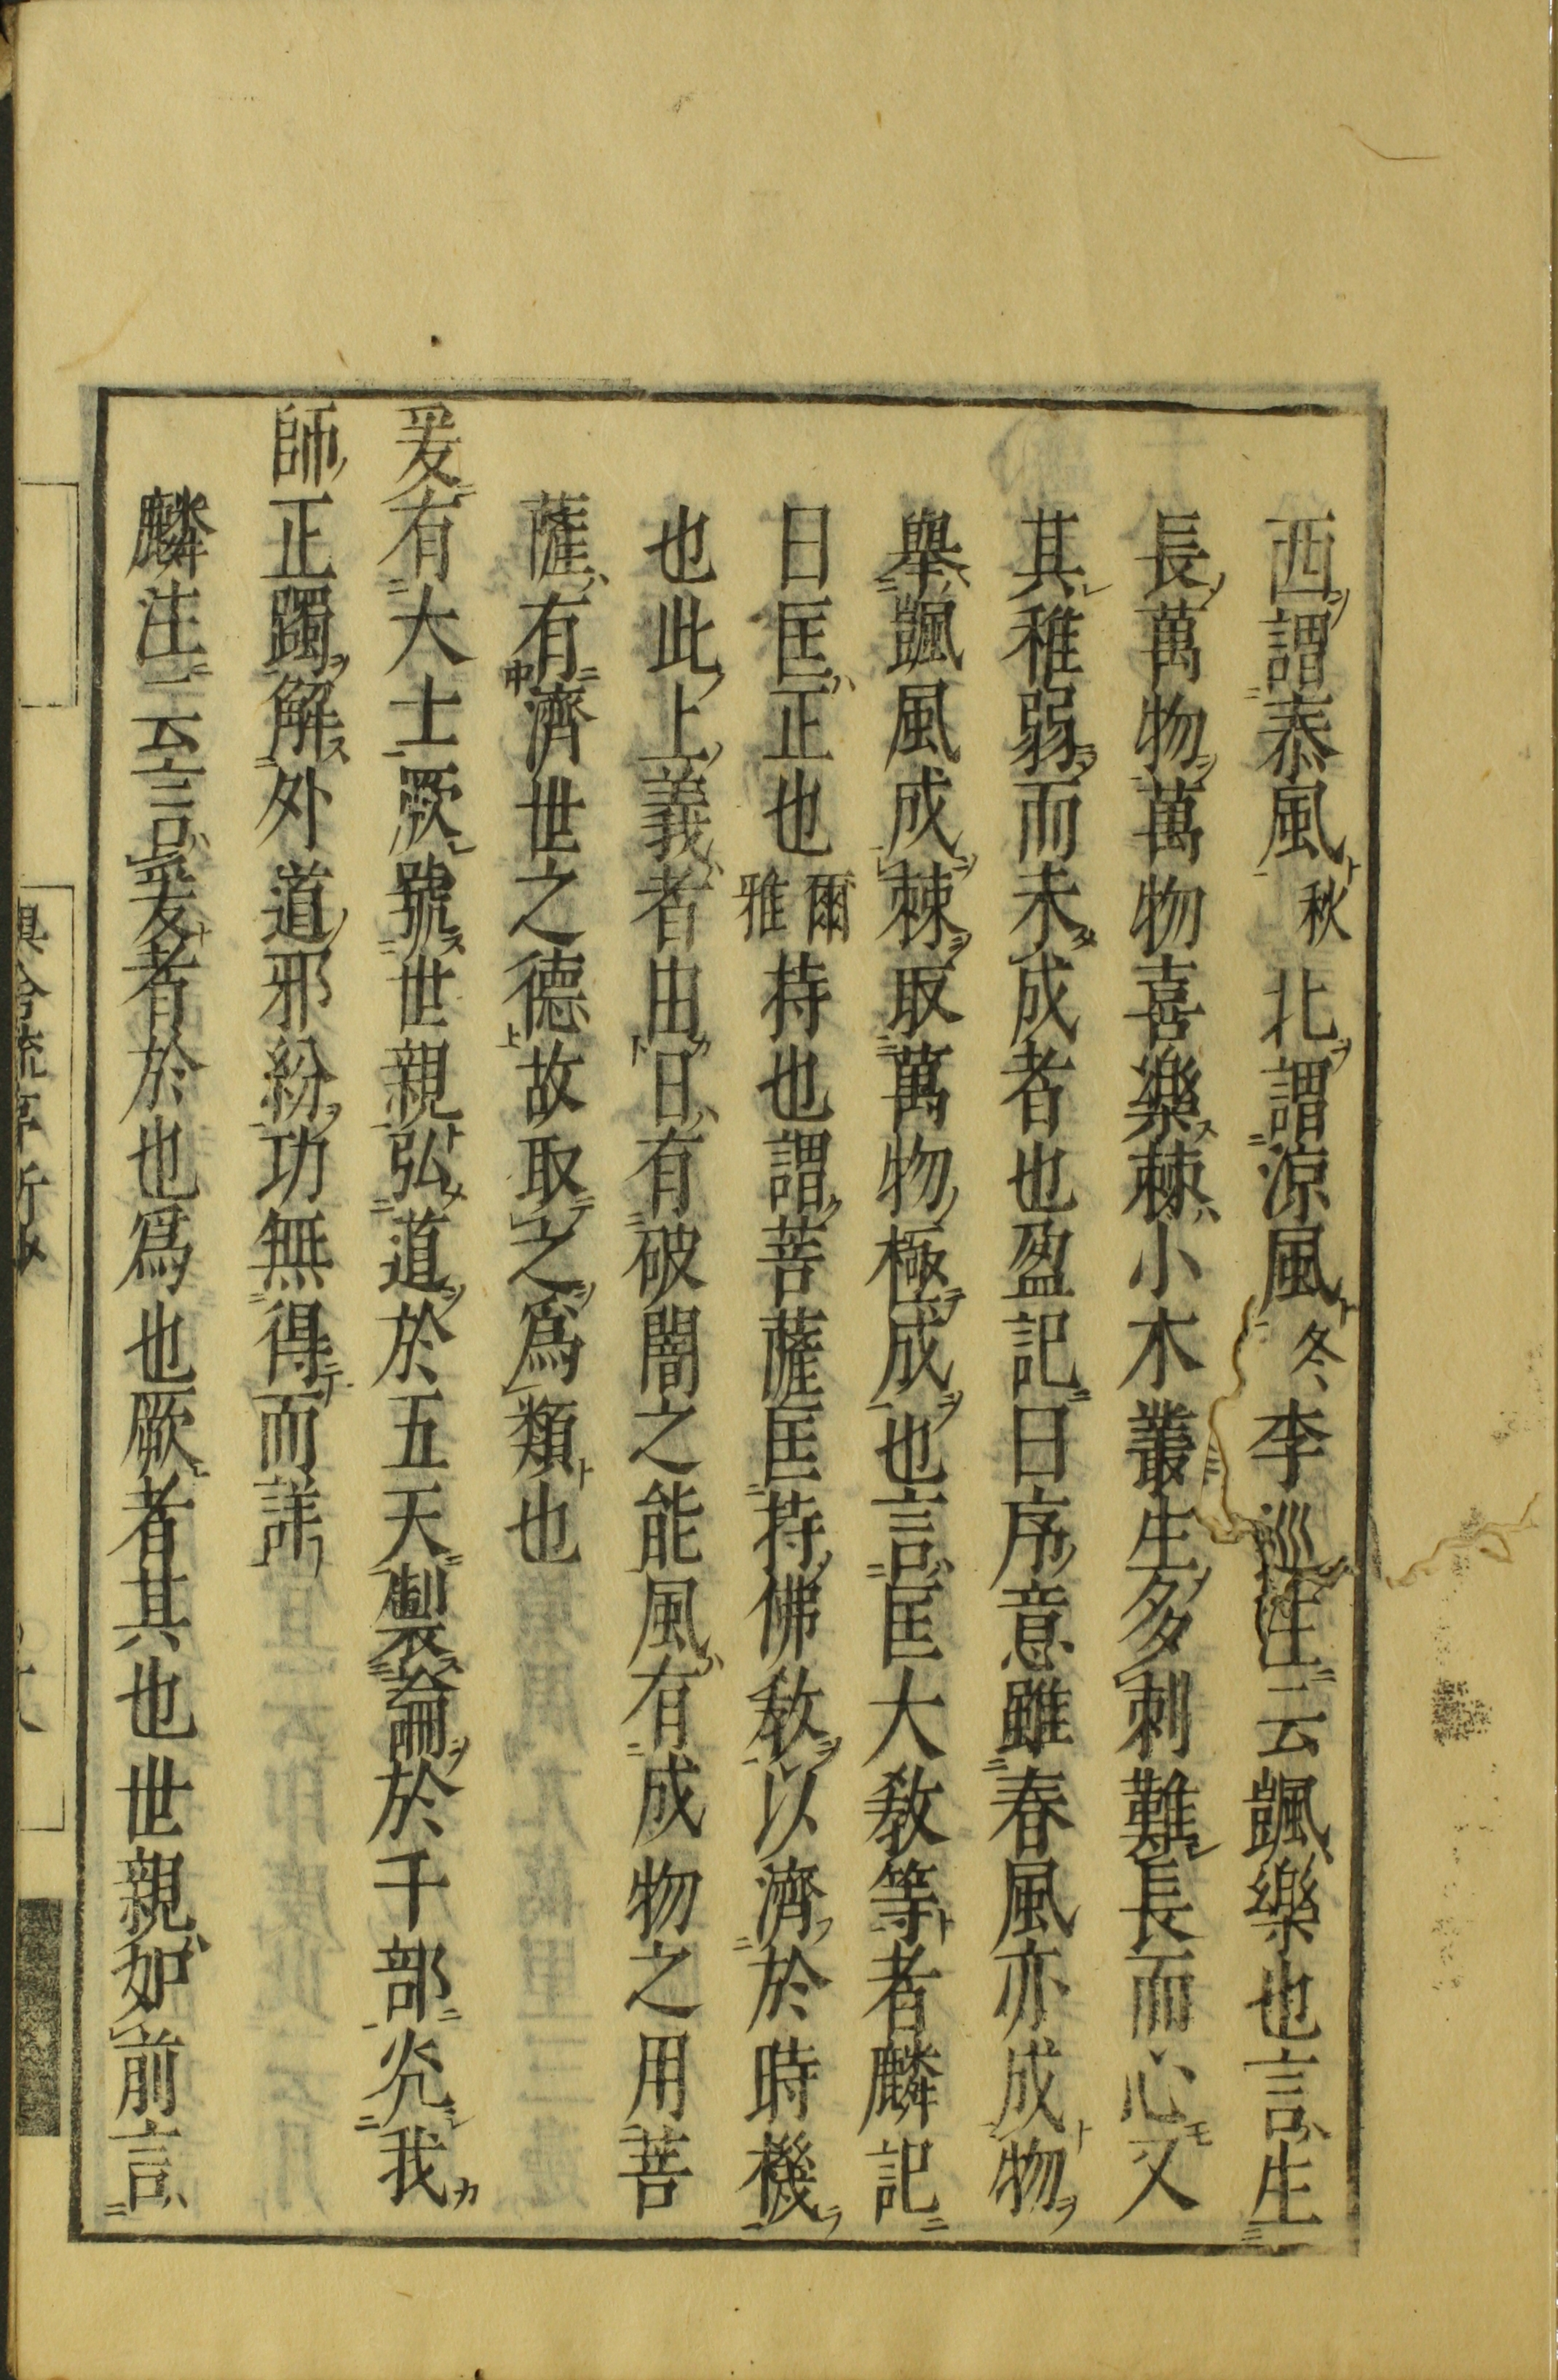 西謂泰風秋北謂涼風冬李巡注云颽樂也言生
長萬物萬物喜樂棘小木叢生多刺難長而心又
其稚弱而未成者也盈記曰序意雖春風亦成物
舉颽風成棘取萬物極成也言匡大教等者麟記
曰匡正也爾雅持也謂菩薩匡持佛教以濟於時機
也此上義者由日有破闇之能風有成物之用菩
薩有濟世之德故取之爲類也
爰有大士厥號世親弘道於五天製論於千部光我
師正躅解外道邪紛功無得而詳
麟注云言爰者於也爲也厥者其也世親如前言